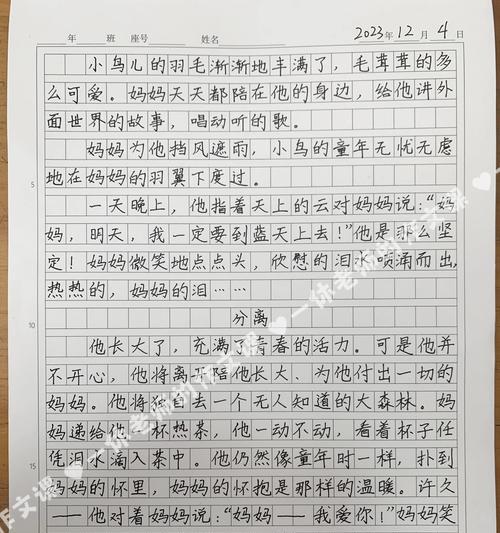 年 班 座号 姓名 2023年12月4日
小鸟儿的羽毛渐渐地丰满了，毛茸茸的多
么可爱。妈妈天天都陪在他的身边，给他讲外
面世界的故事，唱动听的歌。
妈妈为他挡风遮雨，小鸟的童年无忧无虑
5
地在妈妈的羽翼下度过。
一天晚上，他指着天上的云对妈妈说：“妈
妈，明天，我一定要到蓝天上去！”他是那么坚
定！妈妈微笑地点点头，欣慰的泪水喷涌而出，
热热的，妈妈的泪……
10
分离
他长大了，充满了青春的活力。可是他并
不开心，他将离开陪他长大、为他付出一切的
妈妈。他将独自去一个无人知道的大森林。妈
妈递给他一杯热茶，他一动不动，看着杯子任
15
凭泪水滴入茶中。他仍然像童年时一样，扑到
妈妈的怀里，妈妈的怀抱是那样的温暖。许久
——他对着妈妈说：“妈妈——我爱你！”妈妈笑
一休老师的作文课
一休老师的作文课
作文课